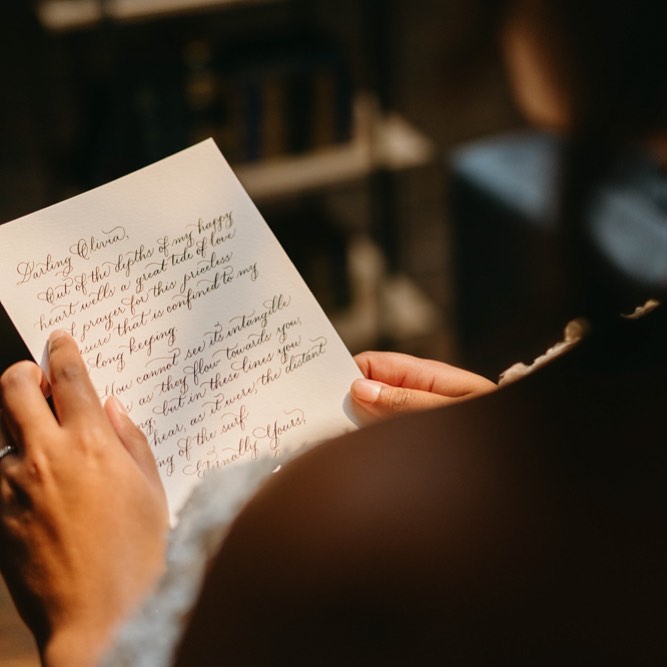 Darling Olivia,
Out of the depths of my happy
heart wells a great tide of love
prayer for this priceless
that is confined to my
long keeping.
You cannot see its intangible
as they flow towards you,
but in these lines you
hear, as it were, the distant
of the surf
Eternally Yours,